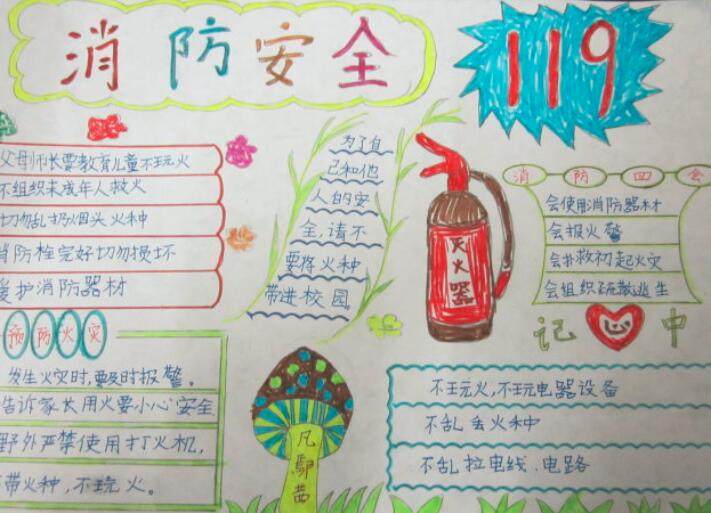 消防安全
119
父母师长要教育儿童不玩火
不组织未成年人救火
切勿乱扔烟头火种
消防栓完好切勿损坏
爱护消防器材
为了自
己和他
人的安
全,请不
要将火种
带进校园
灭火器
消防四会
会使用消防器材
会报火警
会扑救初起火灾
会组织疏散逃生
记心中
预防火灾
发生火灾时,要及时报警。
告诉家长用火要小心安全
野外严禁使用打火机,
不带火种,不玩火。
不玩火,不玩电器设备
不乱丢火种
不乱拉电线、电路
凡
茜